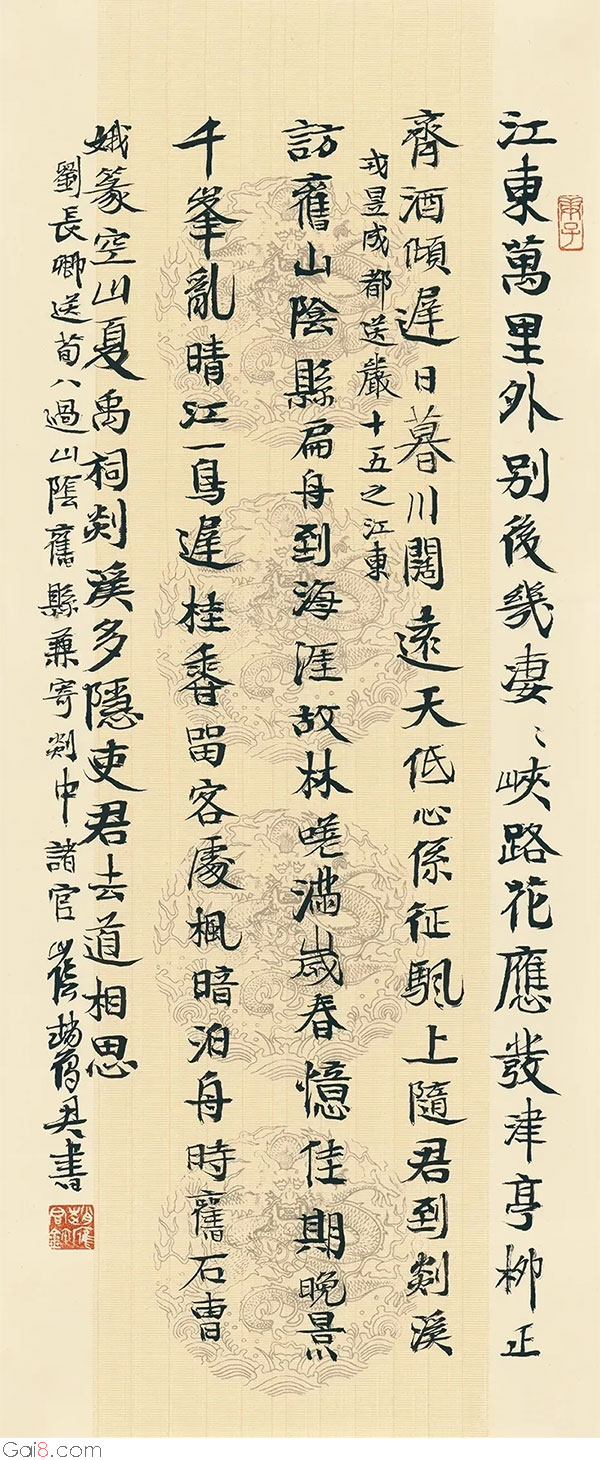 庚子
江東萬里外別後幾淒〻峽路花應發津亭柳正
齊酒傾遲日暮川闊遠天低心係征颿上隨君到剡溪
戎昱成都送嚴十五之江東
訪舊山陰縣扁舟到海涯故林嗟滿歲春憶佳期晚景
千峯亂晴江一鳥遲桂香留客處楓暗泊舟時舊石曹
娥篆空山夏禹祠剡溪多隱吏君去道相思
劉長卿送荀八過山陰舊縣兼寄剡中諸官 書
Gai8.com